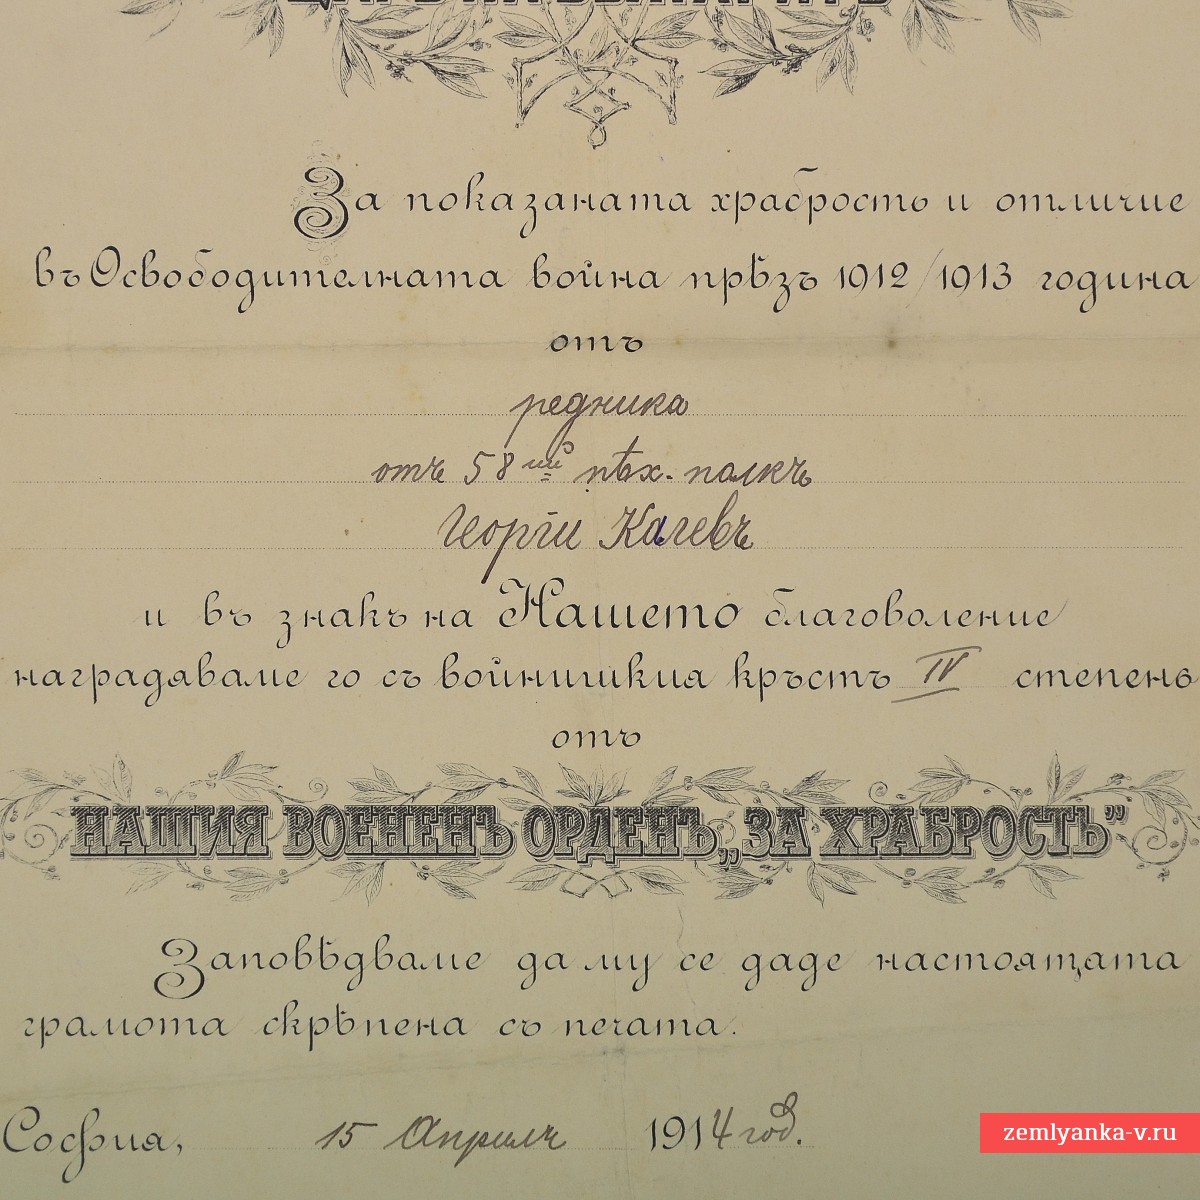 ЦАРЬ НА БЪЛГАРИТѢ
За показаната храбрость и отличие
въ Освободителната война прѣзъ 1912/1913 година
отъ
редника
отъ 58ий пѣх. полкъ
Георги Калевъ
и въ знакъ на Нашето благоволение
награждаваме го съ войнишкия кръстъ IV степень
отъ
НАШИЯ ВОЕНЕНЪ ОРДЕНЪ „ЗА ХРАБРОСТЬ”
Заповѣдваме да му се даде настоящата
грамота скрѣпена съ печата.
София, 15 Априлъ 1914 год.
zemlyanka-v.ru